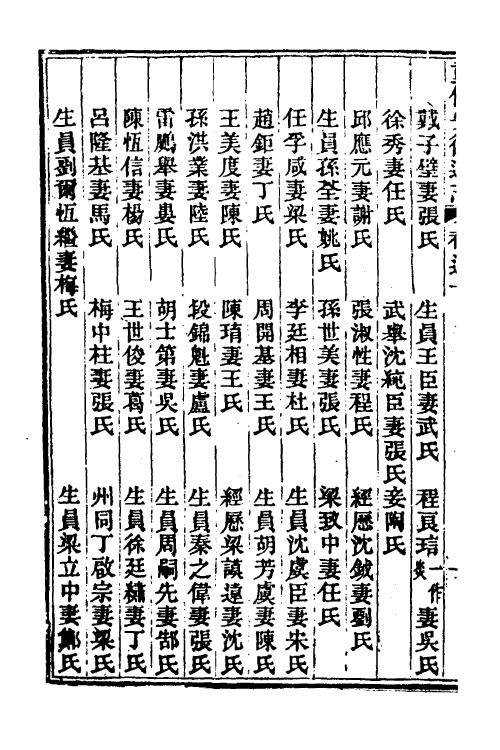 戴子璧妻張氏　生員王臣妻武氏　程良琩一作炎妻吳氏
徐秀妻任氏　武舉沈統臣妻張氏妾陶氏
邱應元妻謝氏　張淑性妻程氏　經歷沈鉞妻劉氏
生員孫荃妻姚氏　孫世美妻張氏　梁致中妻任氏
任孚咸妻梁氏　李廷相妻杜氏　生員沈虞臣妻宋氏
趙鉅妻丁氏　周開基妻王氏　生員胡芳虞妻陳氏
王美度妻陳氏　陳琄妻王氏　經歷梁謨遠妻沈氏
孫洪業妻陸氏　段錦魁妻盧氏　生員秦之偉妻張氏
雷鵬舉妻婁氏　胡士第妻吳氏　生員周嗣先妻郜氏
陳恆信妻楊氏　王世俊妻葛氏　生員徐廷繡妻丁氏
呂隆基妻馬氏　梅中柱妻張氏　州同丁啟宗妻梁氏
生員劉爾恆繼妻梅氏　生員梁立中妻鄭氏